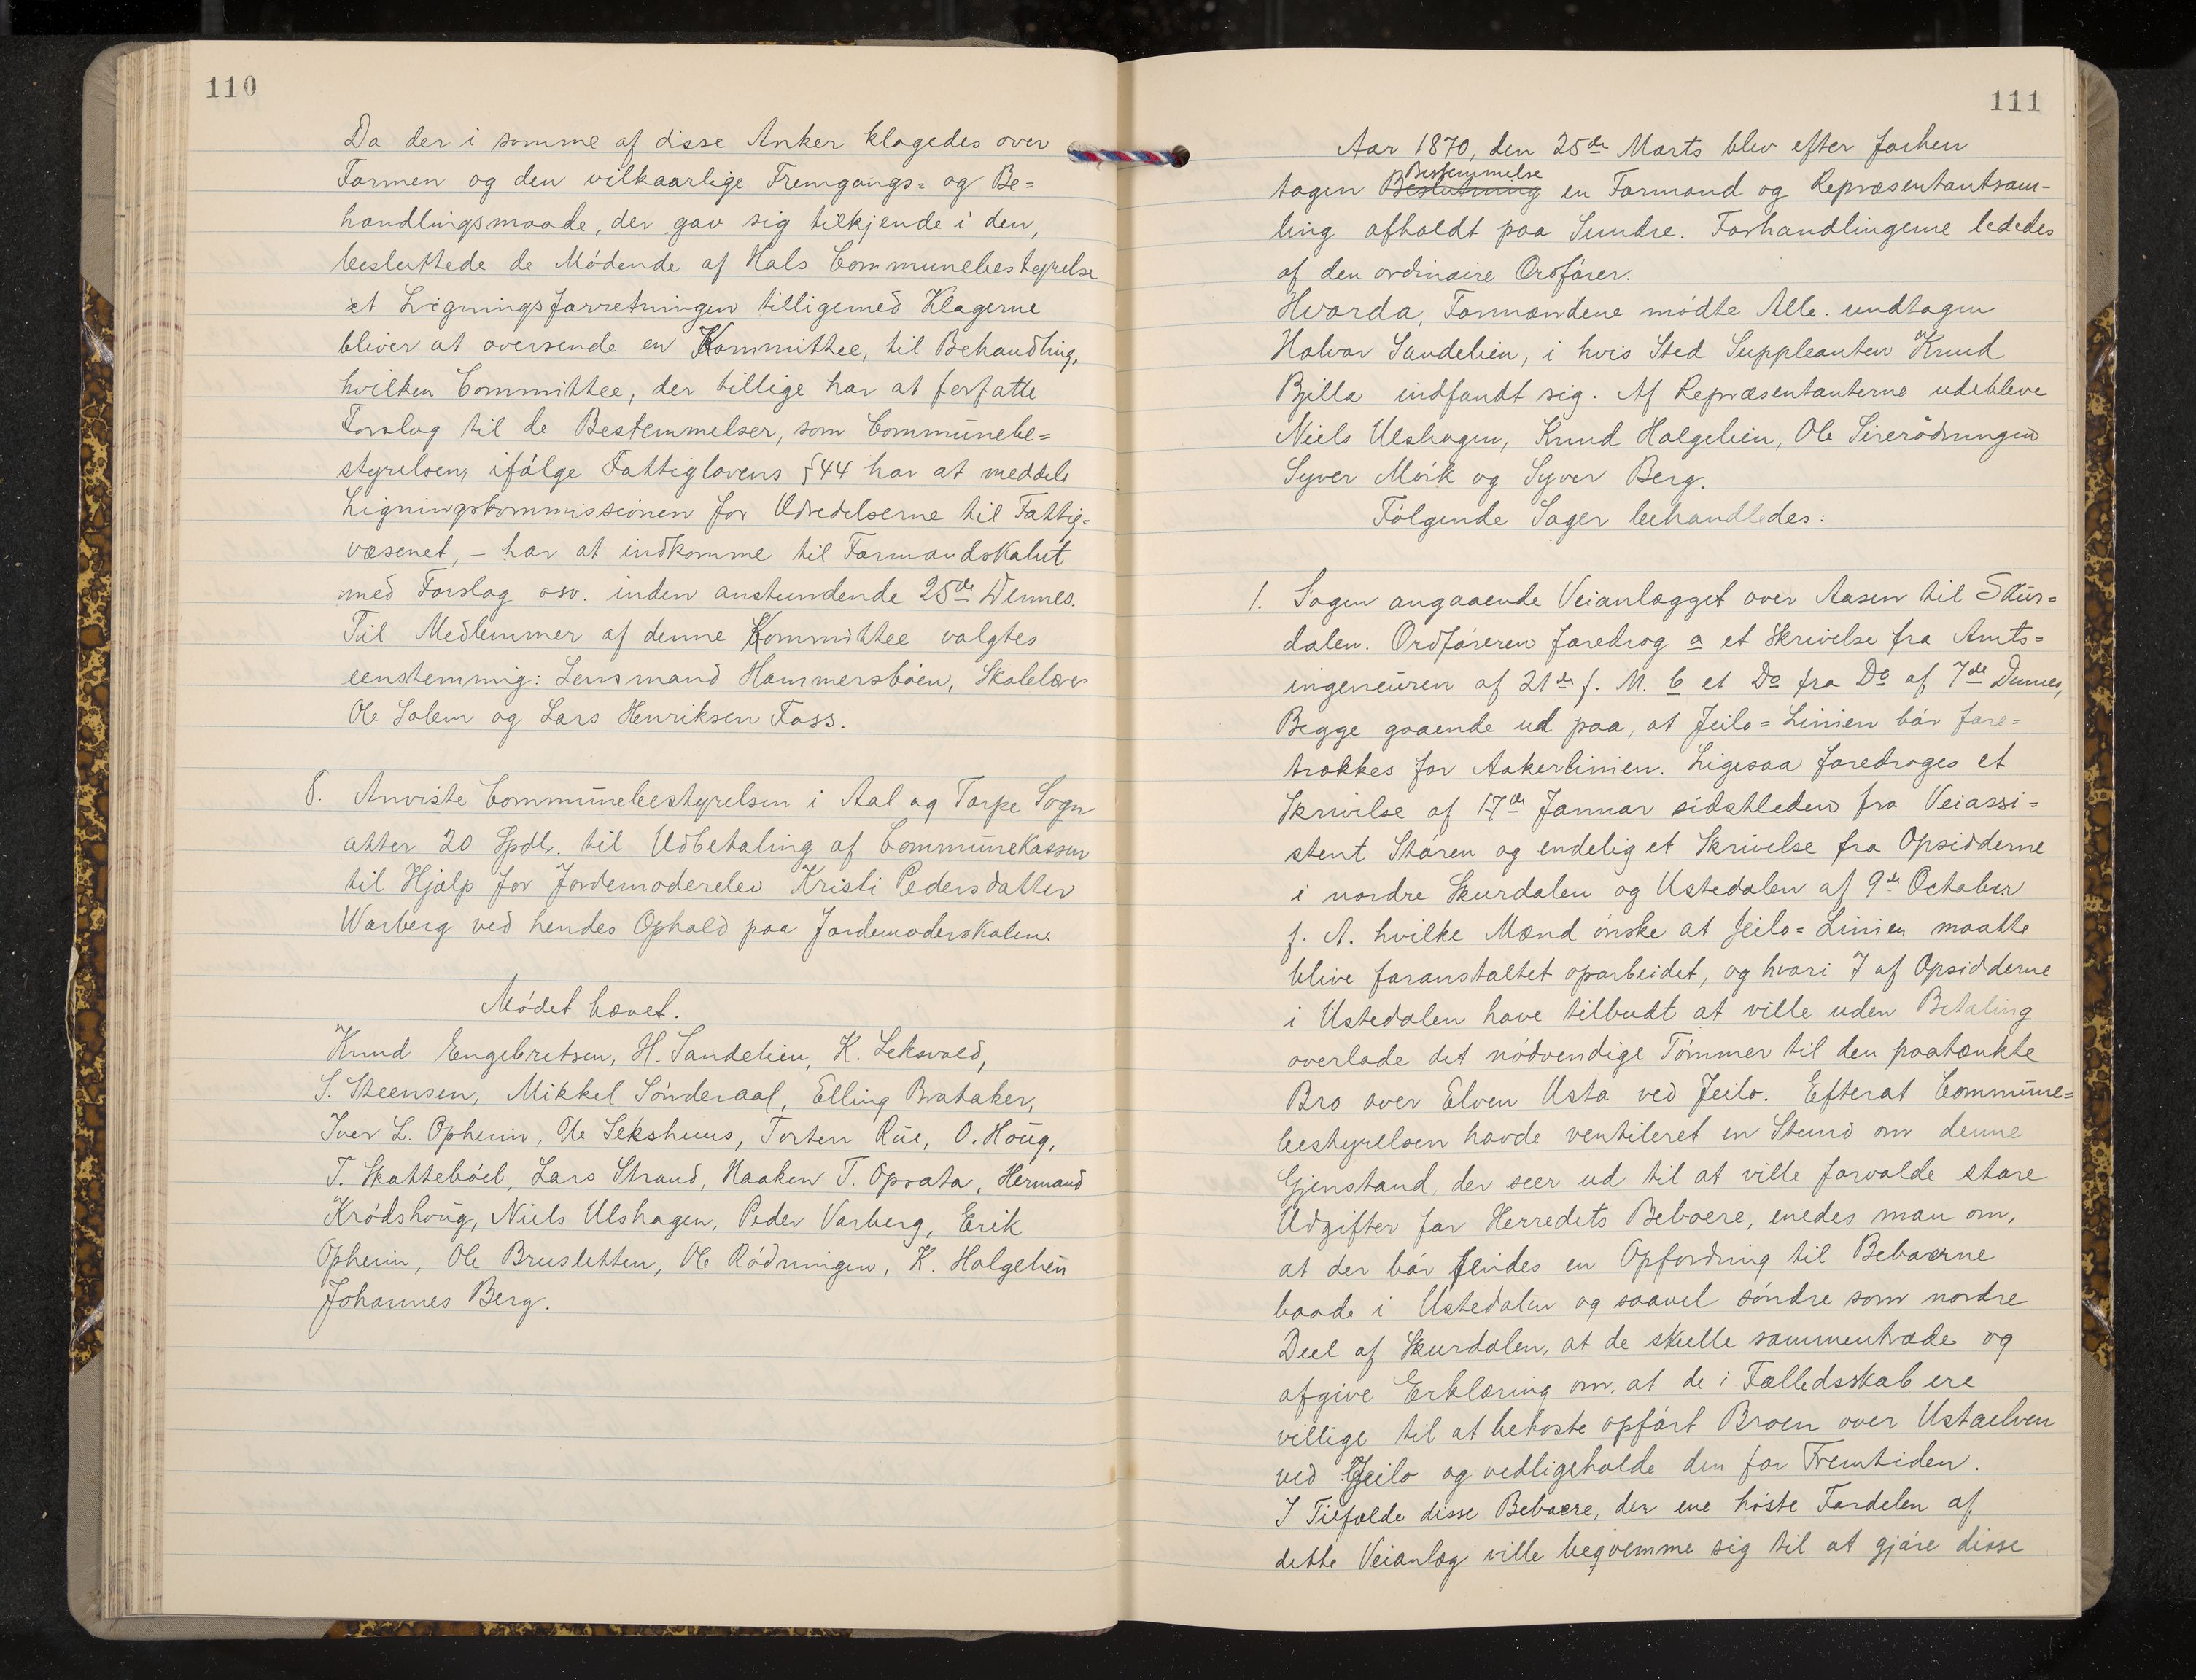 110
Da der i somme af disse Anker klagedes over
Formen og den vilkaarlige Fremgangs= og Be=
handlingsmaade, der gav sig tilkjende i den,
besluttede de Mödende af Hals Communebestyrelse
at Ligningsforretningen tilligemed Klagerne
bliver at oversende en Kommittee, til Behandling,
hvilken Committee, der tillige har at forfatte
Forslag til de Bestemmelser, som Communebe=
styrelsen, ifölge Fattiglovens § 44 har at meddele
Ligningskommissionen for Udredelserne til Fattig=
væsenet, – har at indkomme til Formandskabet
med Forslag osv. inden anstundende 25de Dennes.
Til Medlemmer af denne Kommittee valgtes
eenstemmig: Lensmand Hammersböen, Skolelærer
Ole Solem og Lars Henriksen Foss.
8. Anviste Communebestyrelsen i Aal og Torpe Sogn
atter 20 Spdlr. til Udbetaling af Communekassen
til Hjælp for Jordemoderelev Kristi Pedersdatter
Warberg ved hendes Ophold paa Jordemoderskolen.
Mödet hævet.
Knud Engebretsen, H. Sandelien, K. Leksvold,
S. Steensen, Mikkel Sönderaal, Elling Brataker,
Iver L. Opheim, Ole Sekshuus, Torsten Rue, O. Houg,
T. Skatteböel, Lars Strand, Haaken T. Opsata, Hermand
Krödshoug, Niels Ulshagen, Peder Varberg, Erik
Opheim, Ole Brusletten, Ole Rödningen, K. Holgelien
Johannes Berg.
111
Aar 1870, den 25de Marts blev efter forhen
Bestemmelse
tagen Beslutning en Formand og Repræsentantsam-
ling afholdt paa Sundre. Forhandlingerne lededes
af den ordinaire Orofører.
Hvorda, Formændene mödte Alle. undtagen
Halvor Sandelien, i hvis Sted Suppleanten Knud
Bjella indfandt sig. Af Repræsentanterne udebleve
Niels Ulshagen, Knud Holgelien, Ole Sirerödningen
Syver Mörk og Syver Berg.
Fölgende Sager behandledes:
1. Sagen angaaende Veianlægget over Aasen til Skur=
dalen. Ordföreren foredrog a et Skrivelse fra Amts=
ingeneuren af 21de f. M. b et Do fra Do af 7de Dennes,
Begge gaaende ud paa, at Jeilo=Linien bör fore=
trækkes for Aakerlinien. Ligesaa foredroges et
Skrivelse af 17de Januar sidstleden fra Veiassi=
stent Stören og endelig et Skrivelse fra Opsidderne
i nordre Skurdalen og Ustedalen af 9de October
f. A. hvilke Mænd önske at Jeilo=Linien maatte
blive foranstaltet oparbeidet, og hvori 7 af Opsidderne
i Ustedalen have tilbudt at ville uden Betaling
overlade det nödvendige Tömmer til den paatænkte
Bro over Elven Usta ved Jeilo. Efterat Commune=
bestyrelsen havde ventileret en Stund om denne
Gjenstand, der seer ud til at ville forvolde store
Udgifter for Herredets Beboere, enedes man om,
at der bör sendes en Opfordring til Beboerne
baade i Ustedalen og saavel söndre som nordre
Deel af Skurdalen, at de skulle sammentræde og
afgive Erklæring om, at de i Fælledsskab ere
villige til at bekoste opfört Broen over Ustaelven
ved Geilo og vedligeholde den for Fremtiden.
I Tilfælde disse Beboere, der ene höste Fordelen af
dette Veianlæg ville beqvemme sig til at gjöre disse